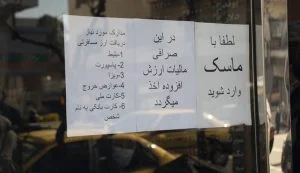 لطفا با
ماسک
وارد شوید
در این
صرافی
مالیات ارزش
افزوده اخذ
میگردد
مدارک مورد نیاز
دریافت ارز مسافرتی
1-بلیط
2-پاسپورت
3-ویزا
4-عوارض خروج
5-کارت ملی
6-کارت بانکی به نام
شخص